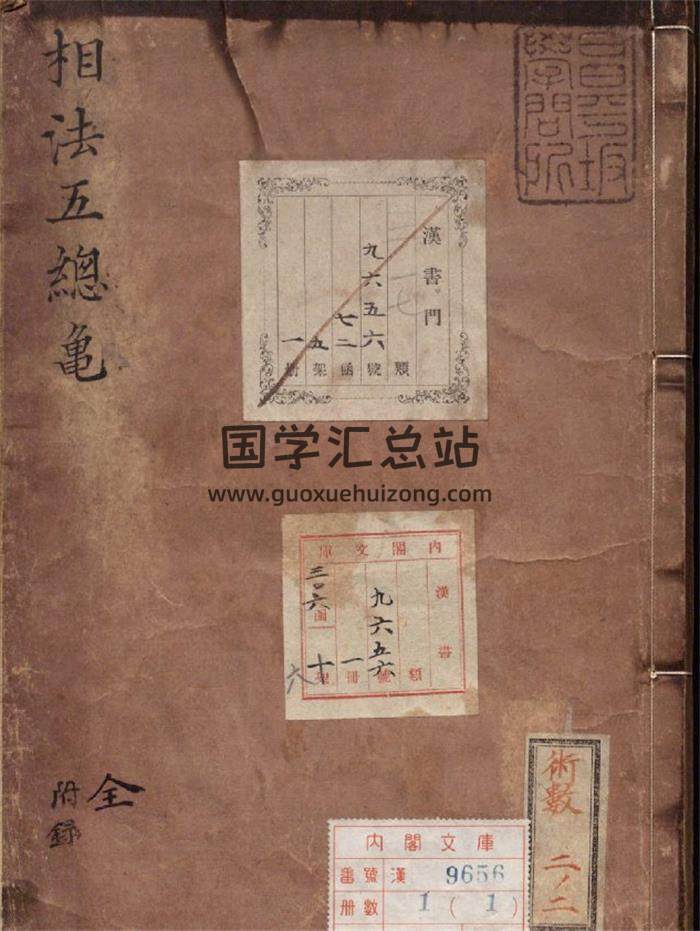 相法五總亀
全
附錄
昌平坂
學問所
漢書門
類
九六五六號
七二函
五架
一冊
国学汇总站
www.guoxuehuizong.com
內閣文庫
漢書
類
九六五六號
一冊
十架
三〇六函
六
術數 二ノ二
內閣文庫
番號 漢 9656
冊數 1 (1)